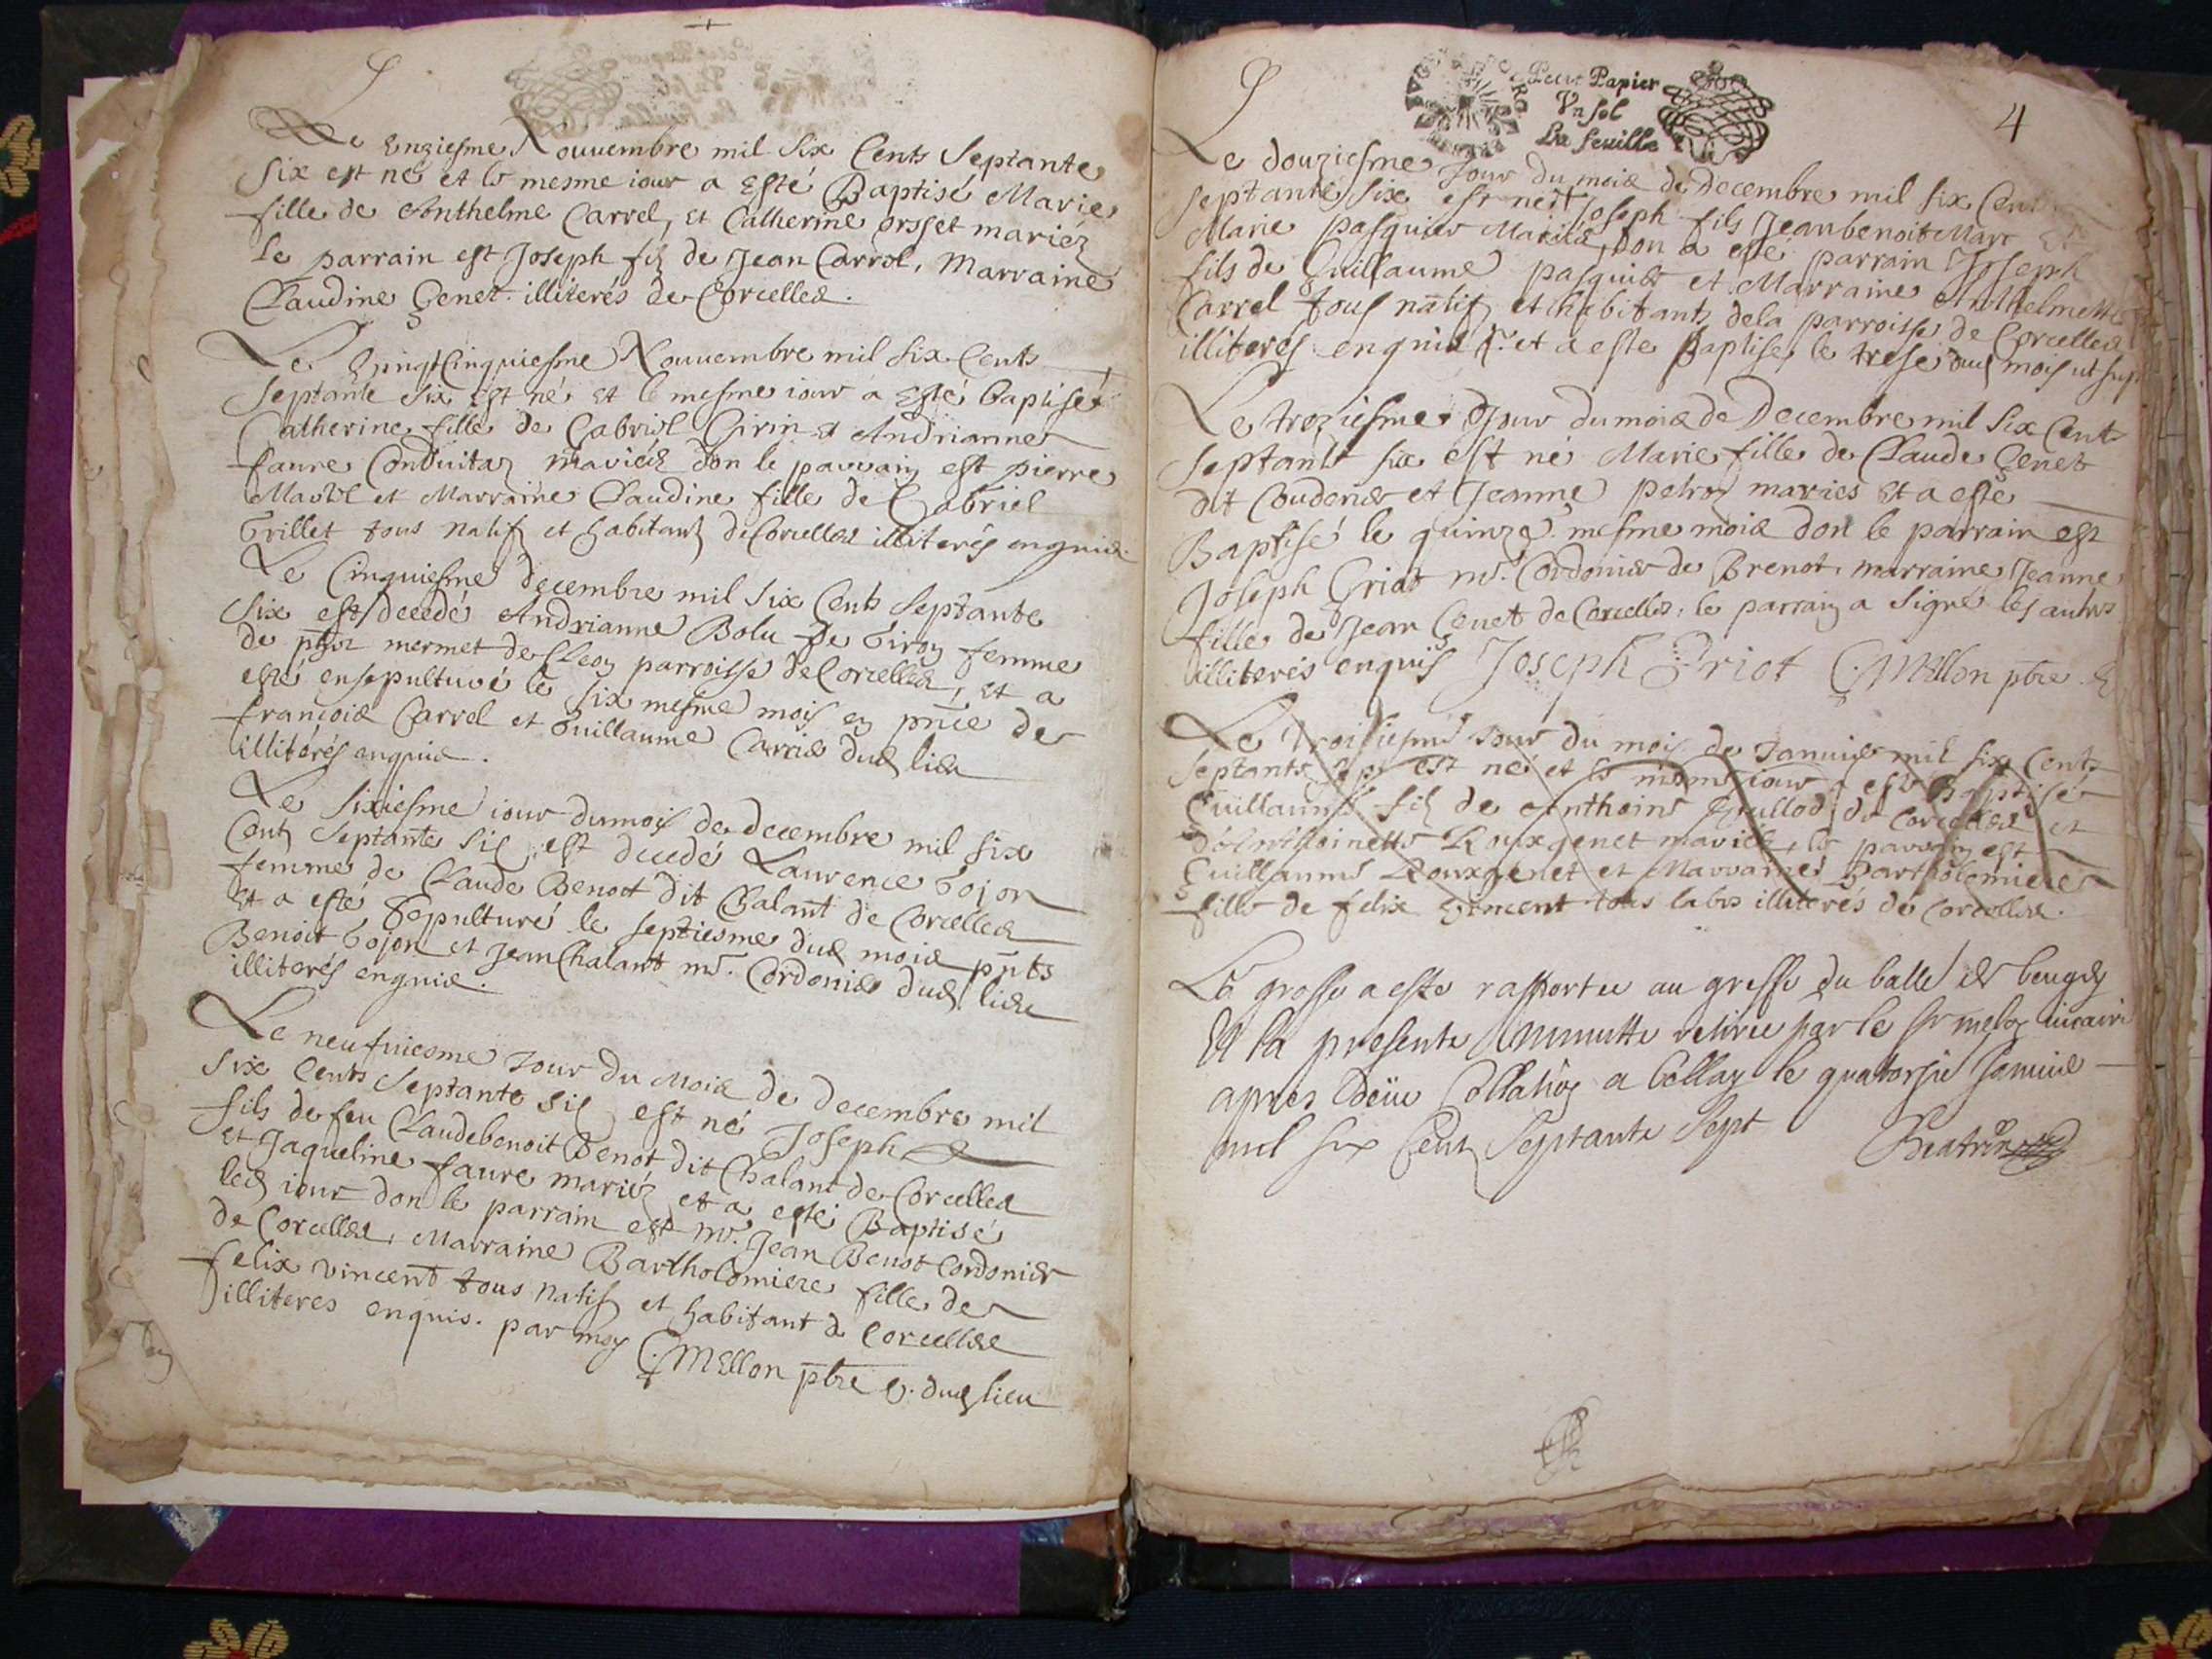 Le Enziesme Nouuembre mil Six Cents Septante
Six est né et le mesme iour a Esté Baptisé Marie
fille de Anthelme Carrel, et Catherine orsset mariéz
le parrain est Joseph filz de Jean Carrel, Marraine
Claudine Genet. illiterés de Corcelles.
Le Vingt Cinquiesme Nouuembre mil Six Cents
Septante Six Est né et le mesme iour a Esté baptisé
Catherine fille de Gabriel Girin et Andrianne
faure mariés don le parrain est pierre
et Marraine Claudine fille de Gabriel
Grillet tous natif et habitantz de Corcelles illiterés enquis.
Le Cinquiesme decembre mil Six Cents Septante
Six est decedé Andrianne Bolu de Giron femme
de mermet de parroisse de Corcelles, et a
esté ensepulturé le Six mesme mois en pnce de
françois Carrel et Guillaume Carrier dud lieu
illiterés enquis.
Le Sixiesme iour du mois de decembre mil Six
Cent Septante Six est decedé Laurence Gojon
femme de Claude Benoit dit Chalant de Corcelles
Et a esté Sepulturé le Septiesme dud mois pnts
Benoit Gojon et Jean Chalant mr. Cordonier dud lieu
illiterés enquis.
Le neufuiesme Jour Du Mois de Decembre mil
Six Cents Septante Six est né Joseph
fils de feu Claudebenoit Benot dit Chalant de Corcelles
Et Jaqueline faure mariéz et a esté Baptisé
led iour don le parrain est mr. Jean Benot Cordonier
de Corcelles, Marraine Bartholomiere fille de
felix vincent tous natif et habitant de Corcelles
illiteres enquis. par moy
C. Mellon ptre v. dud lieu
4
Petit Papier
Vn sol
La feuille
Le douziesme Jour du mois de Decembre mil six Cent
Septante Six est né Joseph fils Jeanbenoit Marc Et
Marie pasquier Mariés, don a esté parrain Joseph
fils de Guillaume pasquier et Marraine Anthelmette
Carrel tous natifz et habitantz dela parroisse de Corcelles
illiterés enquis et a esté Baptisé le trese dud mois ut sup
Le treziesme Jour du mois de Decembre mil Six Cent
Septante Six est né Marie fille de Claude Genet
dit Couderier et Jeanne maries Et a esté
Baptisé le quinze mesme mois don le parrain est
Joseph Griot mr. Cordonier de Brenot, marraine Jeanne
fille de Jean Genet de Corcelles, le parrain a Signé les autres
illiterés enquis Joseph Griot C. Mellon ptre
Le troisiesme Jour du mois de Januier mil six Cents
Septante Sept est né et le mesme iour a esté Baptisé
Guillaume filz de Anthoine de Corcelles et
d'Anthoinette Rouxgenet mariés, le parrain est
Guillaume Rouxgenet et Marraine Bartholomiere
fille de felix vincent tous illiterés de Corcelles.
La grosse a esté rapportée au greffe du balle de beugey
Et la presente minutte retirée par le sr vicaire
apres Deüe Collation a belley le quatorze Januier
mil six Cent Septante Sept